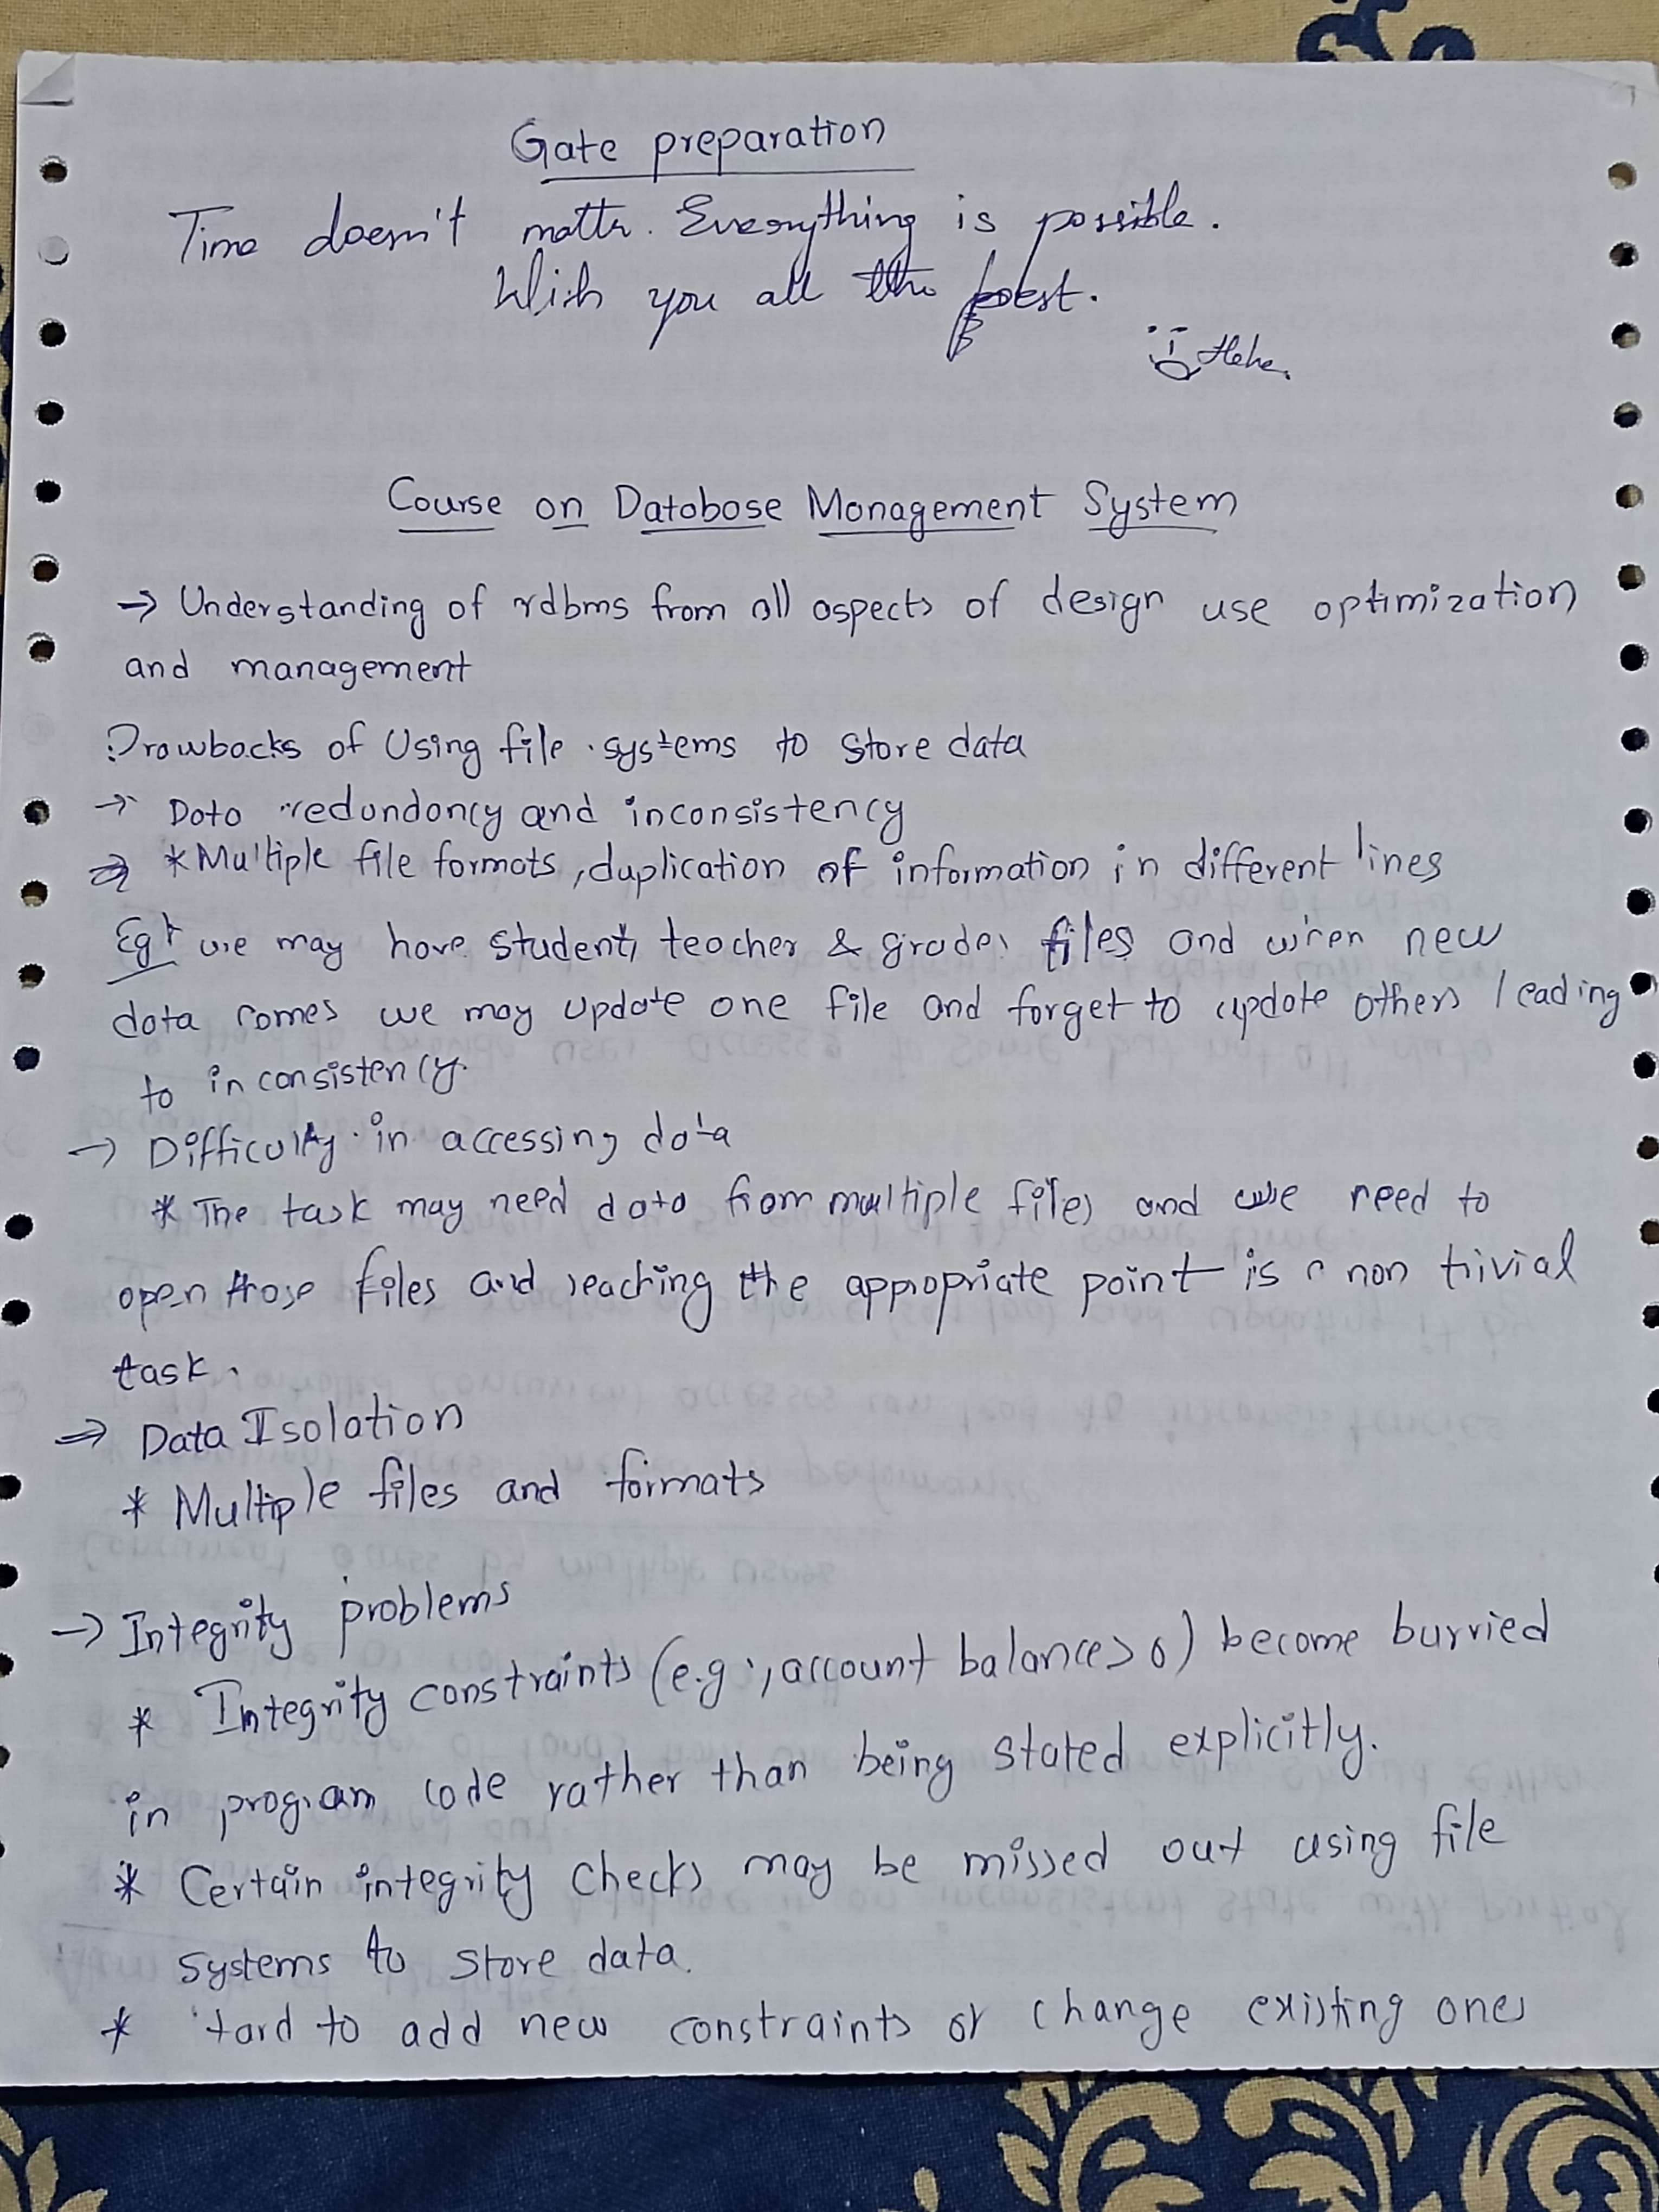 Gate preparation
Time doesn't matter. Everything is possible.
Wish you all the best.
Hehe.
Course on Database Management System
→ Understanding of rdbms from all aspects of design use optimization
and management
Drawbacks of Using file systems to store data
→ Data redundancy and inconsistency
* Multiple file formats, duplication of information in different lines
Eg: we may have student, teacher & grades files and when new
data comes we may update one file and forget to update others leading
to inconsistency.
→ Difficulty in accessing data
* The task may need data from multiple files and we need to
open those files and reaching the appropriate point is a non trivial
task.
⇒ Data Isolation
* Multiple files and formats
→ Integrity problems
* Integrity constraints (e.g., account balance > 0) become burried
in program code rather than being stated explicitly.
* Certain integrity checks may be missed out using file
systems to store data.
* Hard to add new constraints or change existing ones